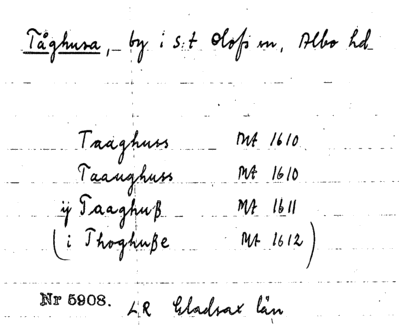 Tåghusa, by i S:t Olofs sn, Albo hd
Taaghuss Mt 1610
Taaughuss Mt 1610
ij Taaghuß Mt 1611
(i Thoghuße Mt 1612)
Nr 5908. LR Gladsax län